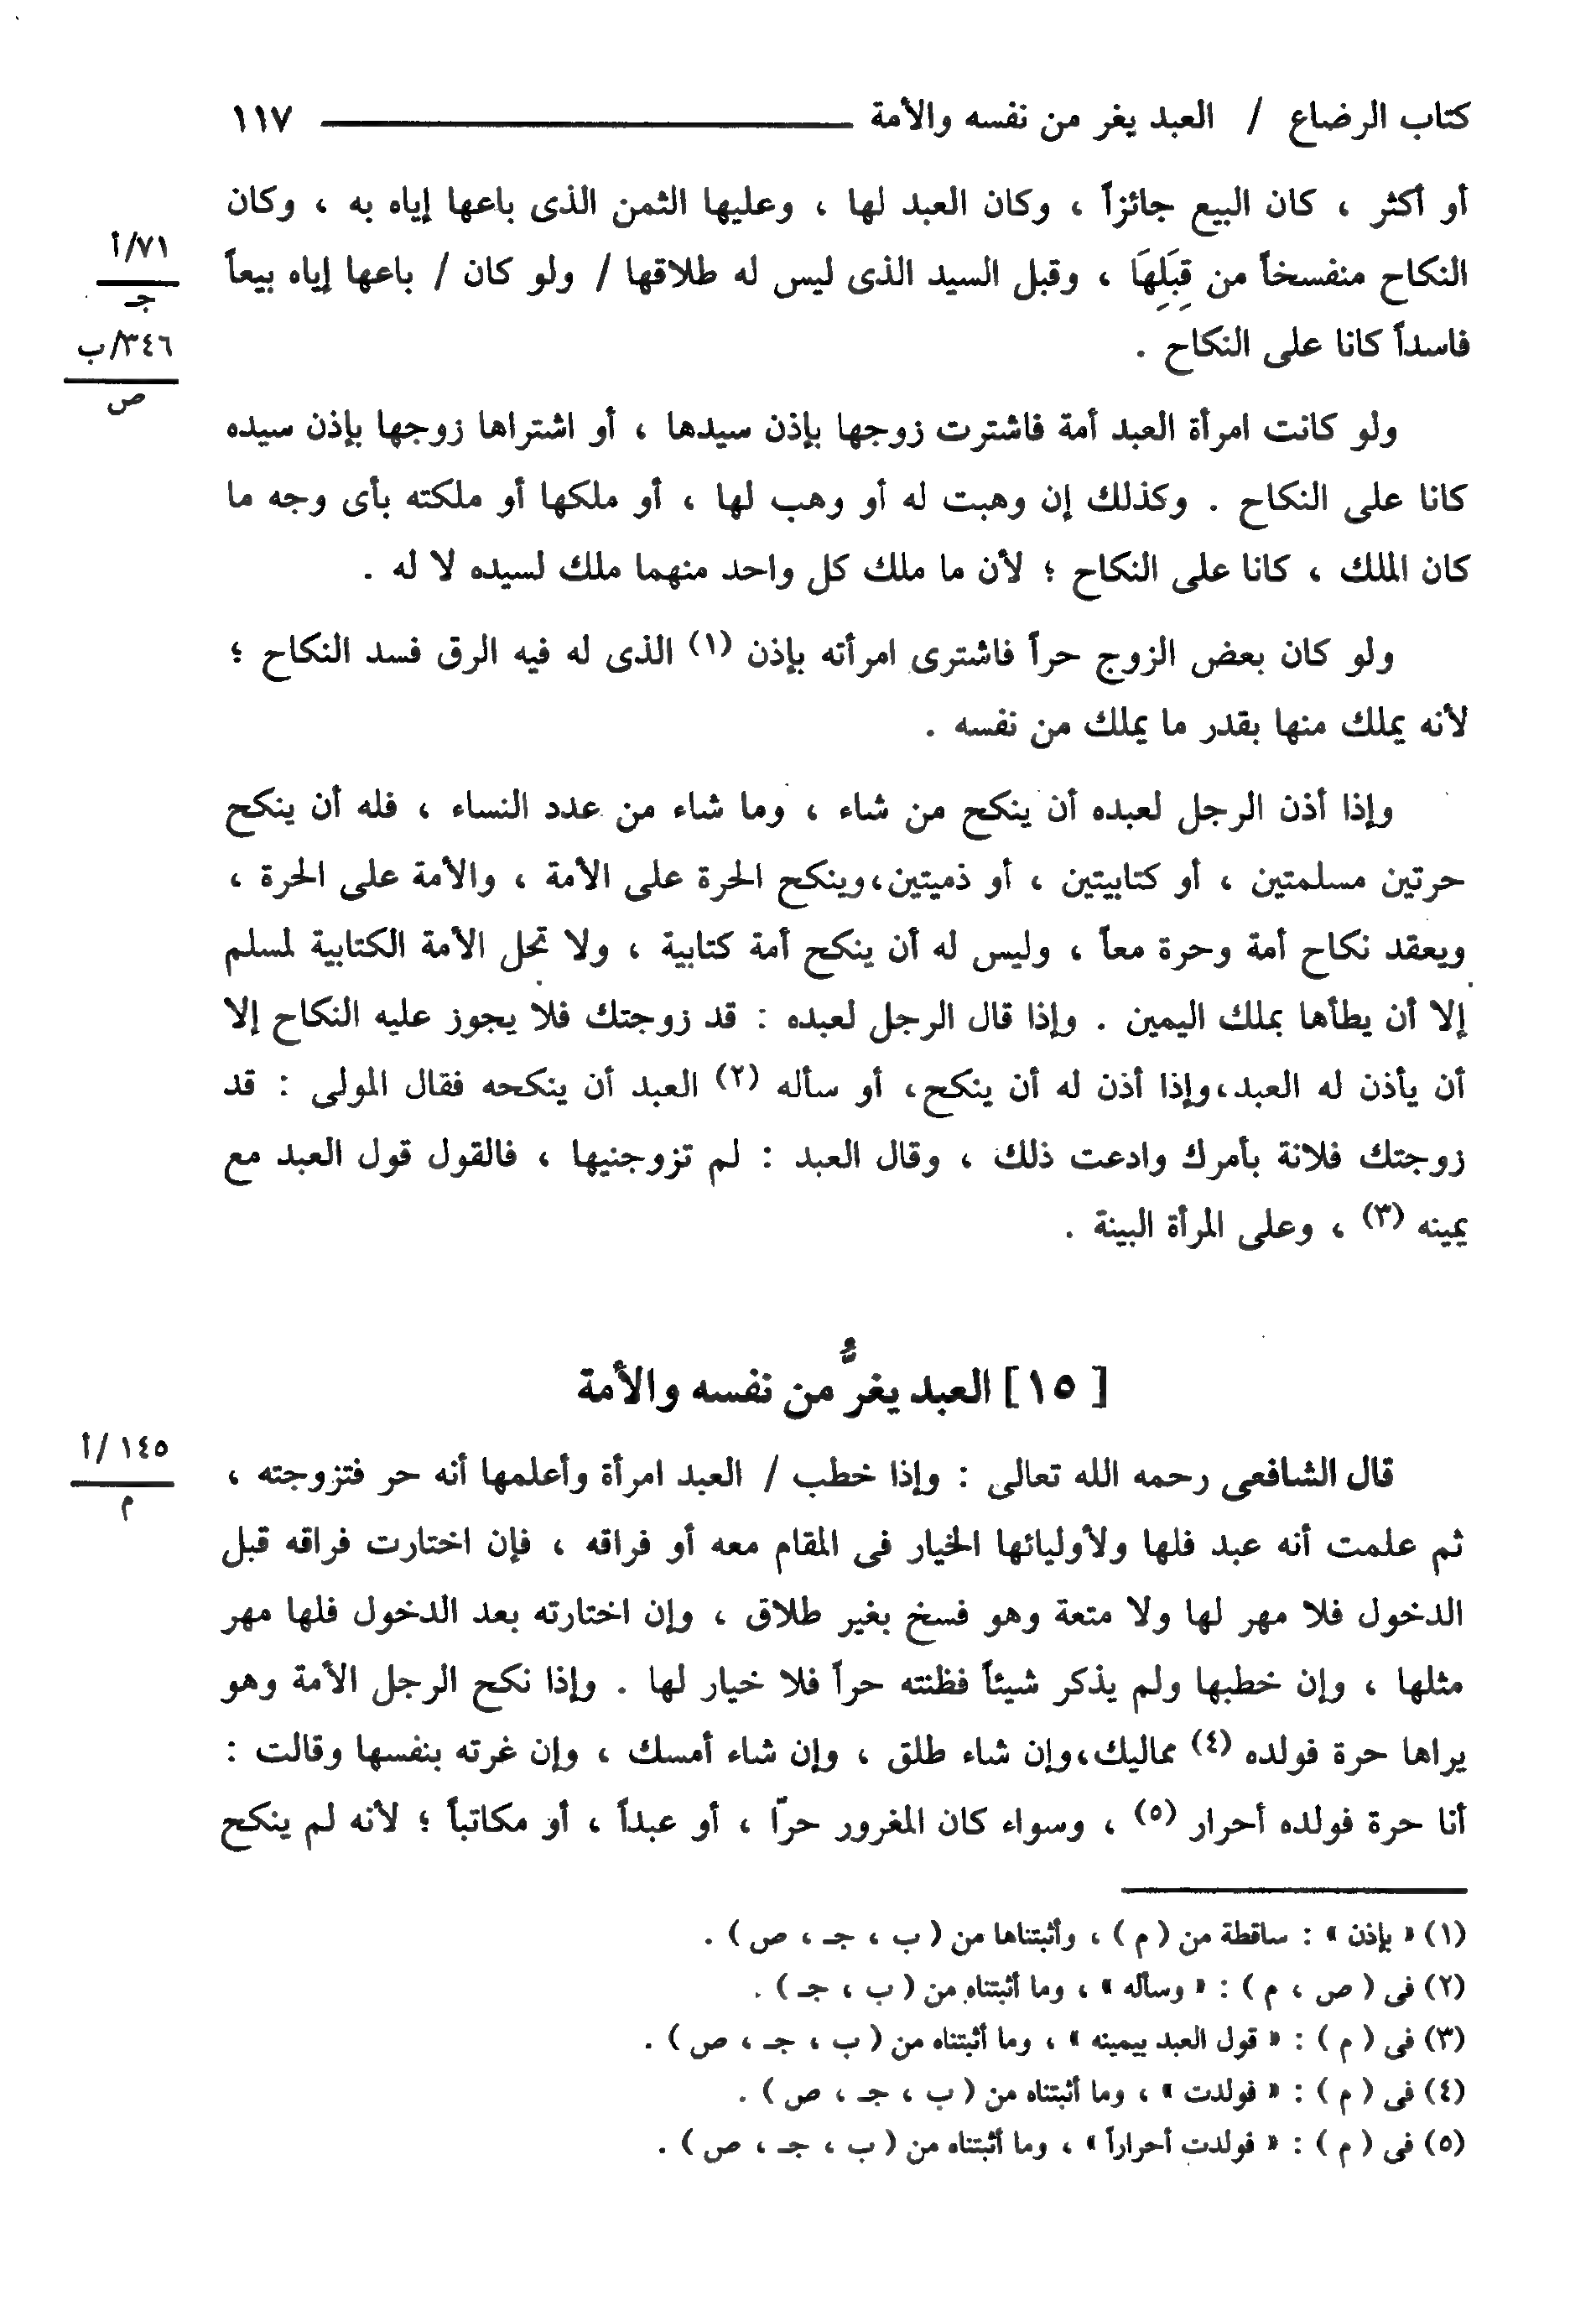 كتاب الرضاع / العبد يغر من نفسه والأمة ١١٧
أو أكثر ، كان البيع جائزاً ، وكان العبد لها ، وعليها الثمن الذى باعها إياه به ، وكان
٧١/أ
جـ
النكاح منفسخاً من قِبَلِهَا ، وقبل السيد الذى ليس له طلاقها / ولو كان / باعها إياه بيعاً
٣٤٦/ب
ص
فاسداً كانا على النكاح .
ولو كانت امرأة العبد أمة فاشترت زوجها بإذن سيدها ، أو اشتراها زوجها بإذن سيده
كانا على النكاح . وكذلك إن وهبت له أو وهب لها ، أو ملكها أو ملكته بأى وجه ما
كان الملك ، كانا على النكاح ؛ لأن ما ملك كل واحد منهما ملك لسيده لا له .
ولو كان بعض الزوج حراً فاشترى امرأته بإذن (١) الذى له فيه الرق فسد النكاح ؛
لأنه يملك منها بقدر ما يملك من نفسه .
وإذا أذن الرجل لعبده أن ينكح من شاء ، وما شاء من عدد النساء ، فله أن ينكح
حرتين مسلمتين ، أو كتابيتين ، أو ذميتين،وينكح الحرة على الأمة ، والأمة على الحرة ،
ويعقد نكاح أمة وحرة معاً ، وليس له أن ينكح أمة كتابية ، ولا تحل الأمة الكتابية لمسلم
إلا أن يطأها بملك اليمين . وإذا قال الرجل لعبده : قد زوجتك فلا يجوز عليه النكاح إلا
أن يأذن له العبد،وإذا أذن له أن ينكح، أو سأله (٢) العبد أن ينكحه فقال المولى : قد
زوجتك فلانة بأمرك وادعت ذلك ، وقال العبد : لم تزوجنيها ، فالقول قول العبد مع
يمينه (٣) ، وعلى المرأة البينة .
[ ١٥] العبد يغرُّ من نفسه والأمة
١٤٥ /أ
م
قال الشافعى رحمه الله تعالى : وإذا خطب / العبد امرأة وأعلمها أنه حر فتزوجته ،
ثم علمت أنه عبد فلها ولأوليائها الخيار فى المقام معه أو فراقه ، فإن اختارت فراقه قبل
الدخول فلا مهر لها ولا متعة وهو فسخ بغير طلاق ، وإن اختارته بعد الدخول فلها مهر
مثلها ، وإن خطبها ولم يذكر شيئاً فظنته حراً فلا خيار لها . وإذا نكح الرجل الأمة وهو
يراها حرة فولده (٤) مماليك،وإن شاء طلق ، وإن شاء أمسك ، وإن غرته بنفسها وقالت :
أنا حرة فولده أحرار (٥) ، وسواء كان المغرور حرّا ، أو عبداً ، أو مكاتباً ؛ لأنه لم ينكح
(١) « بإذن » : ساقطة من ( م ) ، وأثبتناها من ( ب ، جـ ، ص ) .
(٢) فى ( ص ، م ) : « وسأله » ، وما أثبتناه من ( ب ، جـ ) .
(٣) فى ( م ) : « قول العبد بيمينه » ، وما أثبتناه من ( ب ، جـ ، ص ) .
(٤) فى ( م ) : « فولدت » ، وما أثبتناه من ( ب ، جـ ، ص ) .
(٥) فى ( م ) : « فولدت أحراراً » ، وما أثبتناه من ( ب ، جـ ، ص ) .